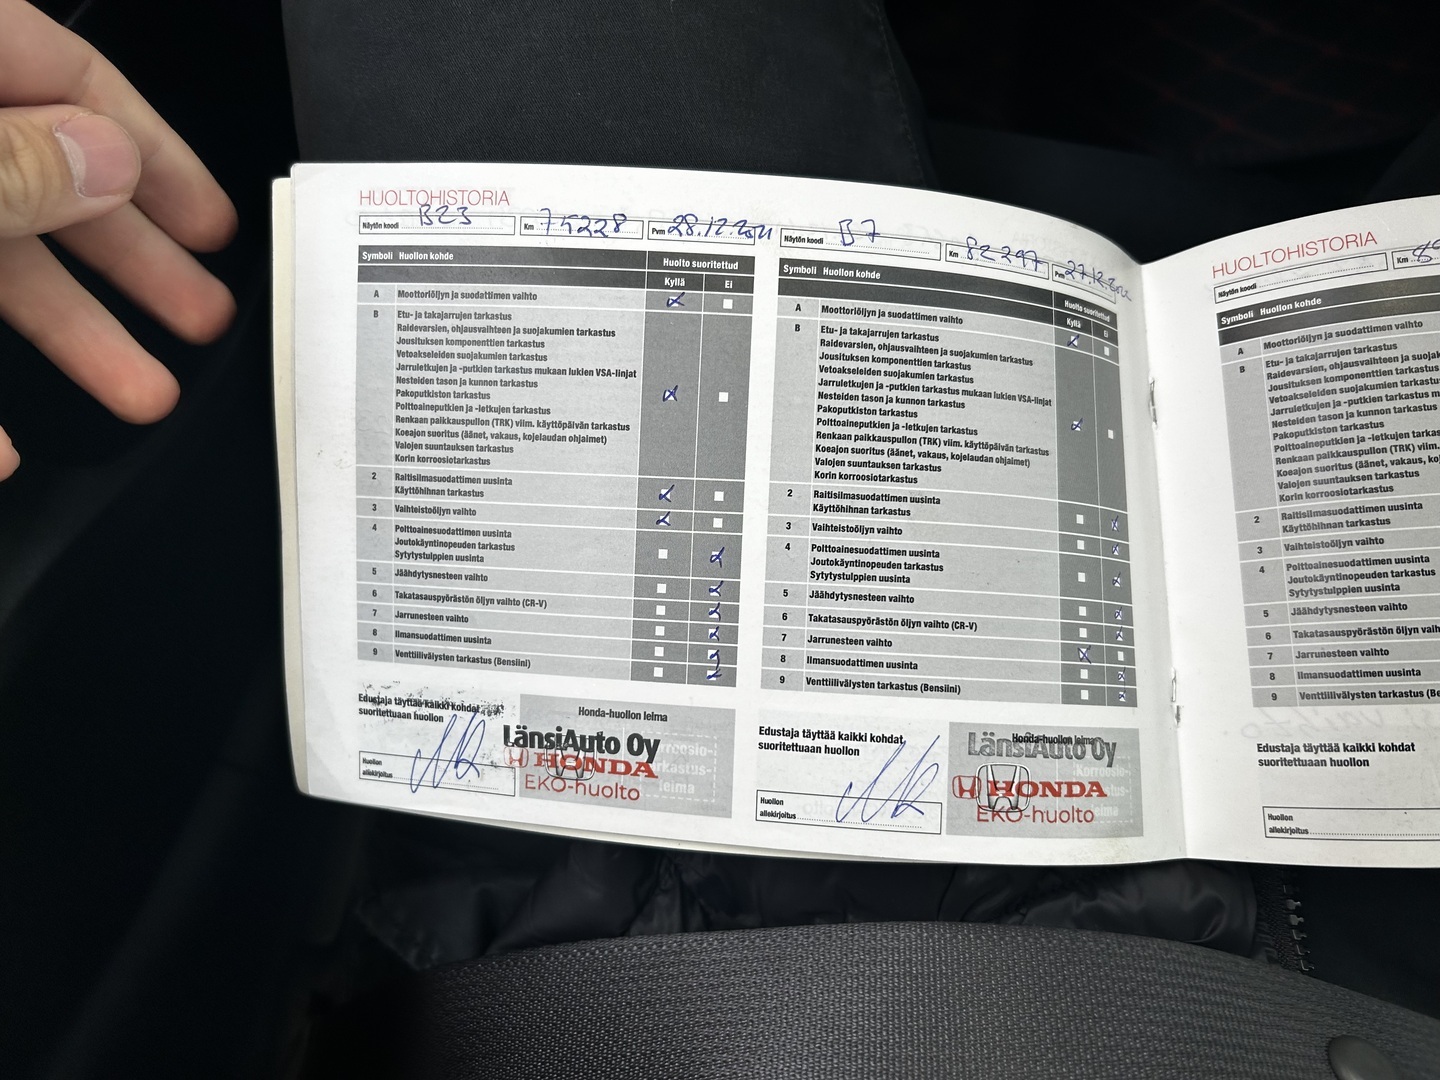 HUOLTOHISTORIA
Näytön koodi B23 Km 75228 Pvm 28.12.2021
Symboli Huollon kohde Huolto suoritettud
Kyllä Ei
A Moottoriöljyn ja suodattimen vaihto
B Etu- ja takajarrujen tarkastus
Raidevarsien, ohjausvaihteen ja suojakumien tarkastus
Jousituksen komponenttien tarkastus
Vetoakseleiden suojakumien tarkastus
Jarruletkujen ja -putkien tarkastus mukaan lukien VSA-linjat
Nesteiden tason ja kunnon tarkastus
Pakoputkiston tarkastus
Polttoaineputkien ja -letkujen tarkastus
Renkaan paikkauspullon (TRK) viim. käyttöpäivän tarkastus
Koeajon suoritus (äänet, vakaus, kojelaudan ohjaimet)
Valojen suuntauksen tarkastus
Korin korroosiotarkastus
2 Raitisilmasuodattimen uusinta
Käyttöhihnan tarkastus
3 Vaihteistoöljyn vaihto
4 Polttoainesuodattimen uusinta
Joutokäyntinopeuden tarkastus
Sytytystulppien uusinta
5 Jäähdytysnesteen vaihto
6 Takatasauspyörästön öljyn vaihto (CR-V)
7 Jarrunesteen vaihto
8 Ilmansuodattimen uusinta
9 Venttiilivälysten tarkastus (Bensiini)
Edustaja täyttää kaikki kohdat
suoritettuaan huollon
Huollon
allekirjoitus
Honda-huollon leima
LänsiAuto Oy
HONDA
EKO-huolto
Näytön koodi B7 Km 82297 Pvm 27.12.2022
Symboli Huollon kohde Huolto suoritettud
Kyllä Ei
A Moottoriöljyn ja suodattimen vaihto
B Etu- ja takajarrujen tarkastus
Raidevarsien, ohjausvaihteen ja suojakumien tarkastus
Jousituksen komponenttien tarkastus
Vetoakseleiden suojakumien tarkastus
Jarruletkujen ja -putkien tarkastus mukaan lukien VSA-linjat
Nesteiden tason ja kunnon tarkastus
Pakoputkiston tarkastus
Polttoaineputkien ja -letkujen tarkastus
Renkaan paikkauspullon (TRK) viim. käyttöpäivän tarkastus
Koeajon suoritus (äänet, vakaus, kojelaudan ohjaimet)
Valojen suuntauksen tarkastus
Korin korroosiotarkastus
2 Raitisilmasuodattimen uusinta
Käyttöhihnan tarkastus
3 Vaihteistoöljyn vaihto
4 Polttoainesuodattimen uusinta
Joutokäyntinopeuden tarkastus
Sytytystulppien uusinta
5 Jäähdytysnesteen vaihto
6 Takatasauspyörästön öljyn vaihto (CR-V)
7 Jarrunesteen vaihto
8 Ilmansuodattimen uusinta
9 Venttiilivälysten tarkastus (Bensiini)
Edustaja täyttää kaikki kohdat
suoritettuaan huollon
Huollon
allekirjoitus
Honda-huollon leima
LänsiAuto Oy
HONDA
EKO-huolto
HUOLTOHISTORIA
Näytön koodi Km
Symboli Huollon kohde
A Moottoriöljyn ja suodattimen vaihto
B Etu- ja takajarrujen tarkastus
Raidevarsien, ohjausvaihteen ja suojak
Jousituksen komponenttien tarkastus
Vetoakseleiden suojakumien tarkastus
Jarruletkujen ja -putkien tarkastus m
Nesteiden tason ja kunnon tarkastus
Pakoputkiston tarkastus
Polttoaineputkien ja -letkujen tarkastus
Renkaan paikkauspullon (TRK) viim.
Koeajon suoritus (äänet, vakaus, ko
Valojen suuntauksen tarkastus
Korin korroosiotarkastus
2 Raitisilmasuodattimen uusinta
Käyttöhihnan tarkastus
3 Vaihteistoöljyn vaihto
4 Polttoainesuodattimen uusinta
Joutokäyntinopeuden tarkastus
Sytytystulppien uusinta
5 Jäähdytysnesteen vaihto
6 Takatasauspyörästön öljyn vaih
7 Jarrunesteen vaihto
8 Ilmansuodattimen uusinta
9 Venttiilivälysten tarkastus (Be
Edustaja täyttää kaikki kohdat
suoritettuaan huollon
Huollon
allekirjoitus